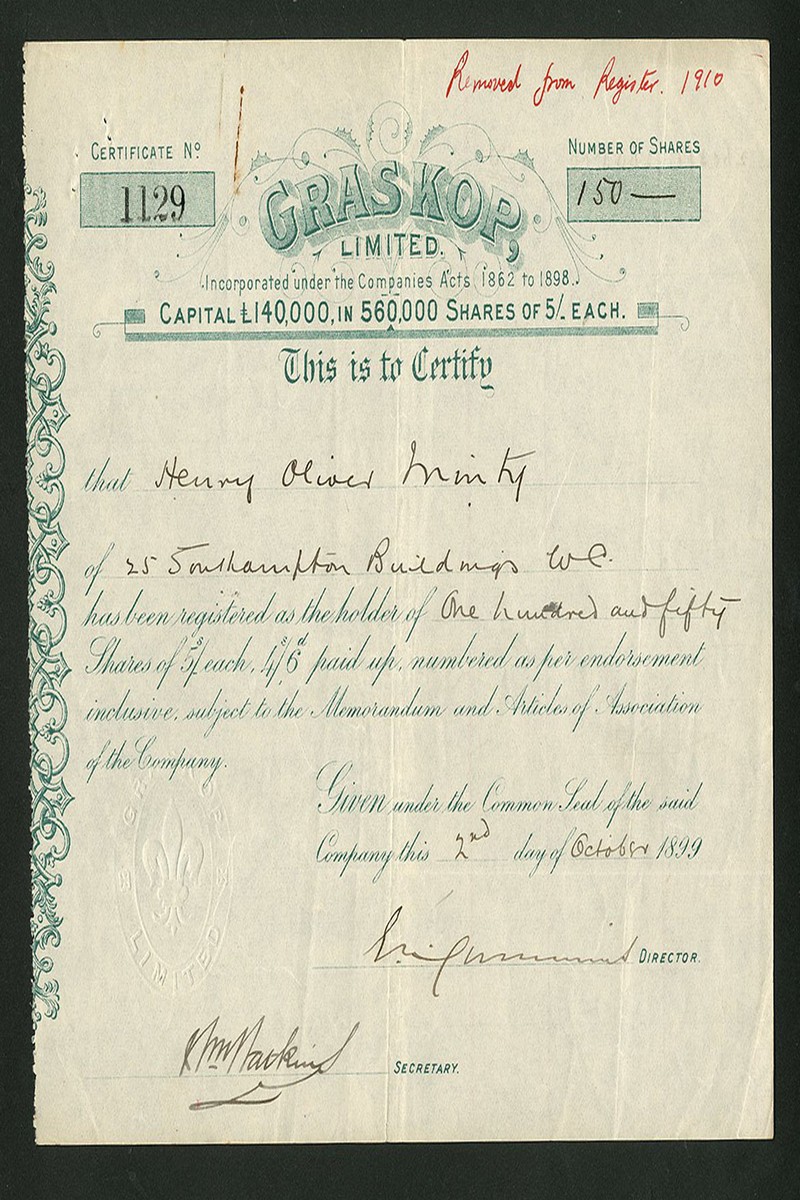 Removed from Register. 1910
CERTIFICATE Nº
1129
NUMBER OF SHARES
150 —
GRASKOP,
LIMITED.
Incorporated under the Companies Acts 1862 to 1898.
CAPITAL £140,000, IN 560,000 SHARES OF 5/- EACH.
This is to Certify
that Henry Oliver Minty
of 25 Southampton Buildings W.C.
has been registered as the holder of One hundred and fifty
Shares of 5/s each, 4/s 6d paid up, numbered as per endorsement
inclusive, subject to the Memorandum and Articles of Association
of the Company.
Given under the Common Seal of the said
Company this 2nd day of October 1899
DIRECTOR.
SECRETARY.
LIMITED